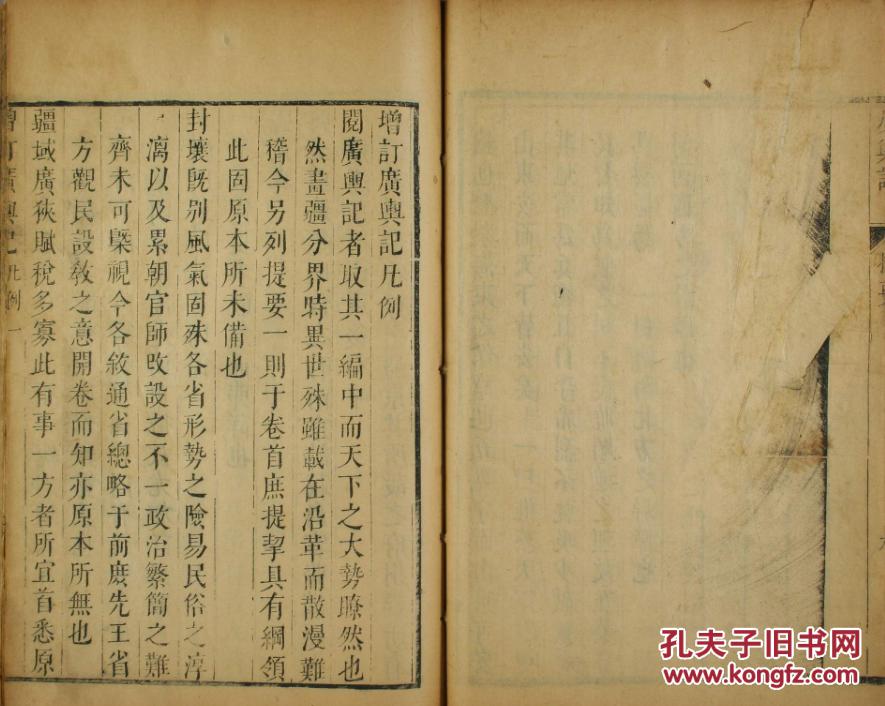 增訂廣輿記凡例
閱廣輿記者取其一編中而天下之大勢瞭然也
然畫疆分界時異世殊雖載在沿革而散漫難
稽今另列提要一則于卷首庶提挈具有綱領
此固原本所未備也
封壤旣别風氣固殊各省形勢之險易民俗之淳
漓以及累朝官師改設之不一政治繁簡之難
齊未可槩視今各敘通省總略于前慶先王省
方觀民設敎之意開卷而知亦原本所無也
疆域廣狹賦稅多寡此有事一方者所宜首悉原
增訂廣輿記 凡例 一
孔夫子旧书网
www.kongfz.com